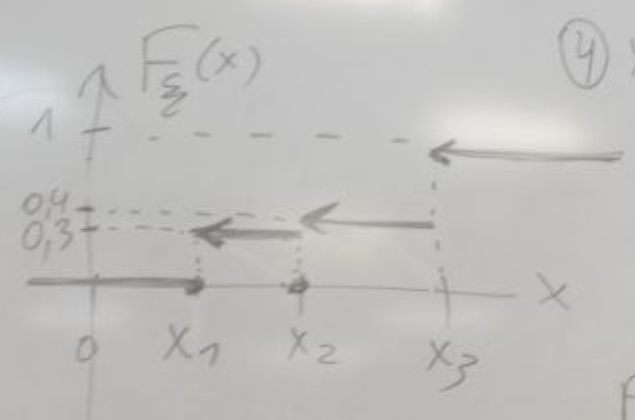 F_ξ(x)
4
1
0,4
0,3
x
0 x₁ x₂ x₃